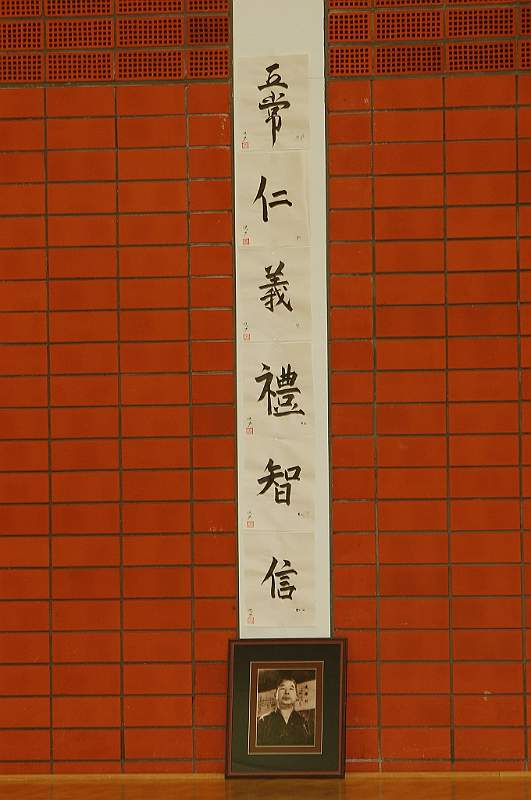 五常
仁
義
禮
智
信